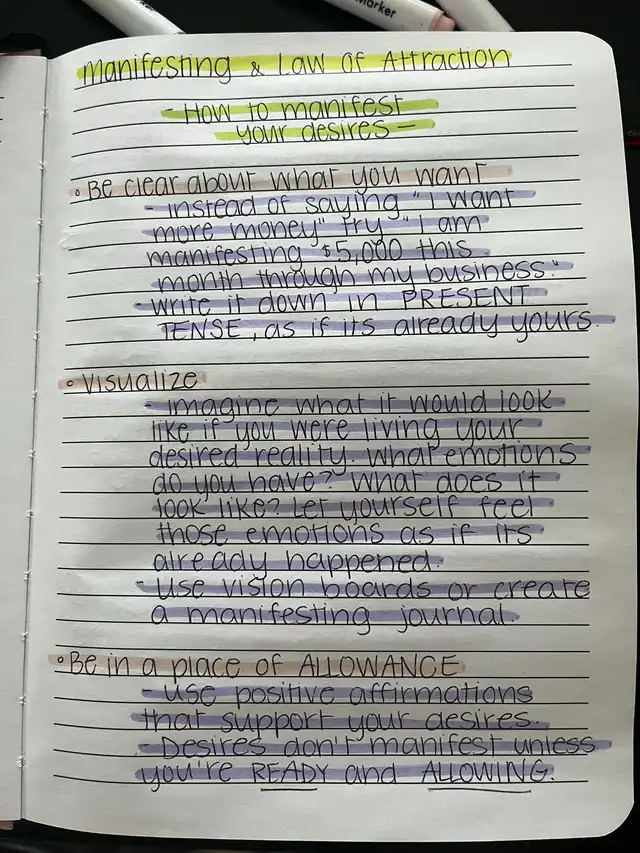 Marker
Manifesting & Law of Attraction
- How to manifest
your desires -
◦ Be clear about what you want
- instead of saying "I want
more money" try "I am
manifesting $5,000 this
month through my business."
- write it down in PRESENT
TENSE, as if its already yours.
◦ Visualize
- imagine what it would look
like if you were living your
desired reality. What emotions
do you have? What does it
look like? Let yourself feel
those emotions as if its
already happened.
- Use vision boards or create
a manifesting journal.
◦ Be in a place of ALLOWANCE
- Use positive affirmations
that support your desires.
- Desires don't manifest unless
you're READY and ALLOWING.